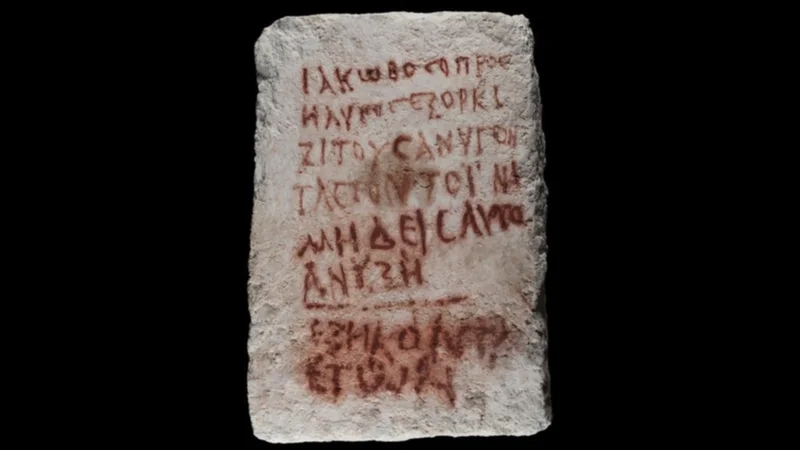 ΙΑΚΩΒΟϹΟΠΡΟϹ
ΗΛΥΤΟϹΕΞΟΡΚΙ
ΖΙΤΟΥϹΑΝΥΓΟΝ
ΤΑϹΤΟΝΤΟΪΝΑ
ΜΗΔΕΙϹΑΥΤΟ
ΑΝΥΞΗ
ΕΞΗΚΟΝΤΑ